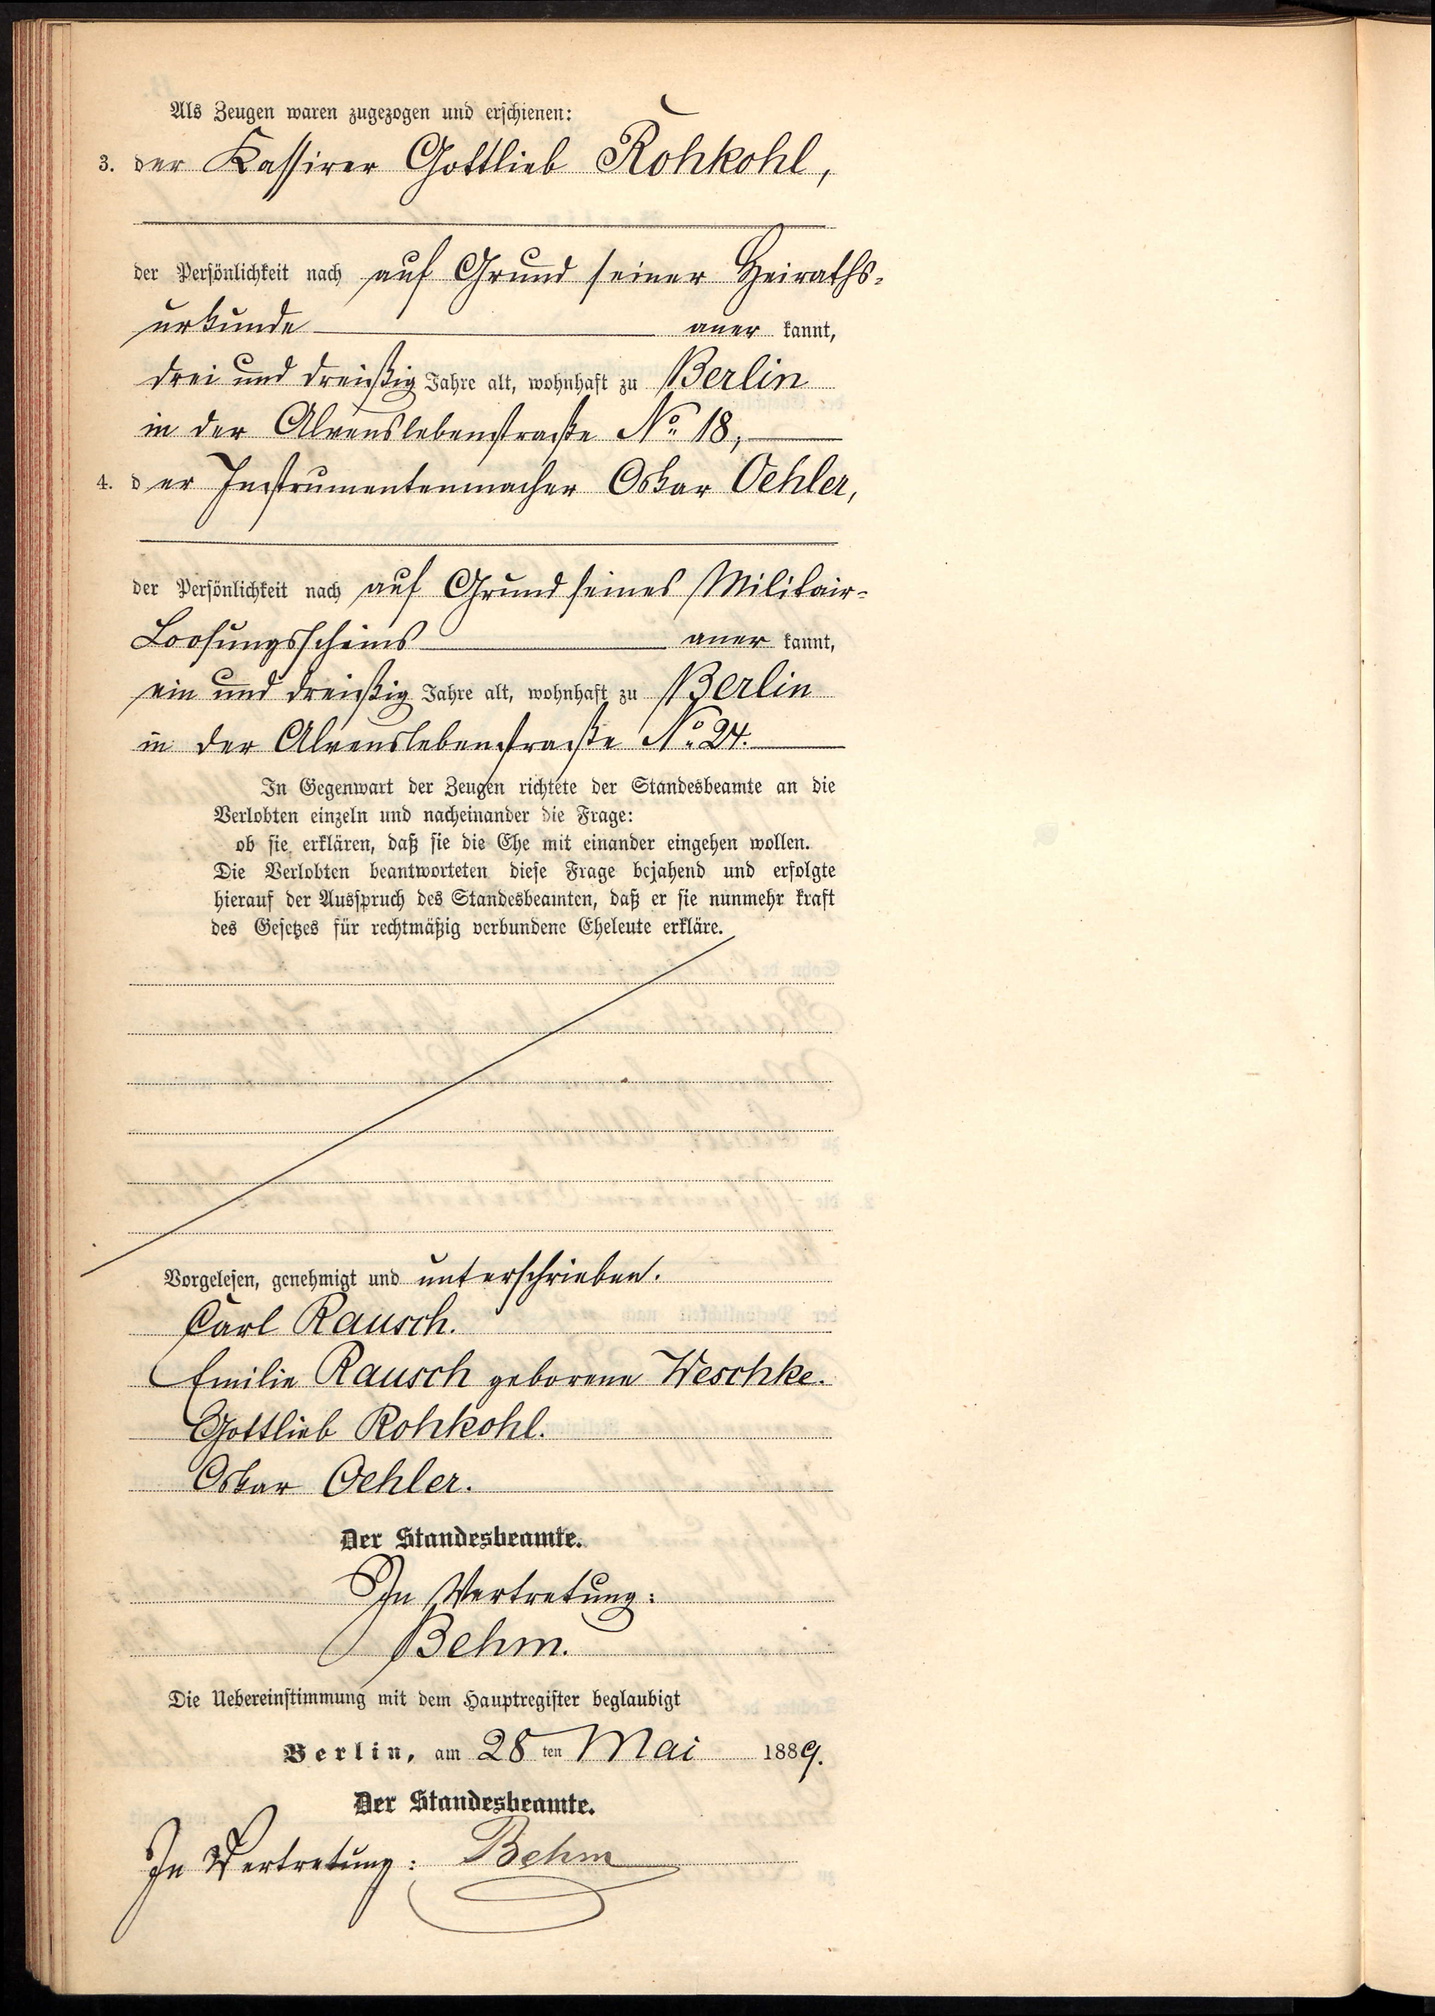 Als Zeugen waren zugezogen und erschienen:
3. der Kassirer Gottlieb Rohkohl,
der Persönlichkeit nach auf Grund seiner Heiraths-
urkunde aner kannt,
drei und dreißig Jahre alt, wohnhaft zu Berlin
in der Alvenslebenstraße No. 18,
4. der Instrumentenmacher Oskar Oehler,
der Persönlichkeit nach auf Grund seines Militair-
Loosungsscheins aner kannt,
ein und dreißig Jahre alt, wohnhaft zu Berlin
in der Alvenslebenstraße No. 24.
In Gegenwart der Zeugen richtete der Standesbeamte an die
Verlobten einzeln und nacheinander die Frage:
ob sie erklären, daß sie die Ehe mit einander eingehen wollen.
Die Verlobten beantworteten diese Frage bejahend und erfolgte
hierauf der Ausspruch des Standesbeamten, daß er sie nunmehr kraft
des Gesetzes für rechtmäßig verbundene Eheleute erkläre.
Vorgelesen, genehmigt und unterschrieben.
Carl Rausch.
Emilie Rausch geborene Weschke.
Gottlieb Rohkohl.
Oskar Oehler.
Der Standesbeamte.
In Vertretung:
Behm.
Die Uebereinstimmung mit dem Hauptregister beglaubigt
Berlin, am 28 ten Mai 1889.
Der Standesbeamte.
In Vertretung: Behm